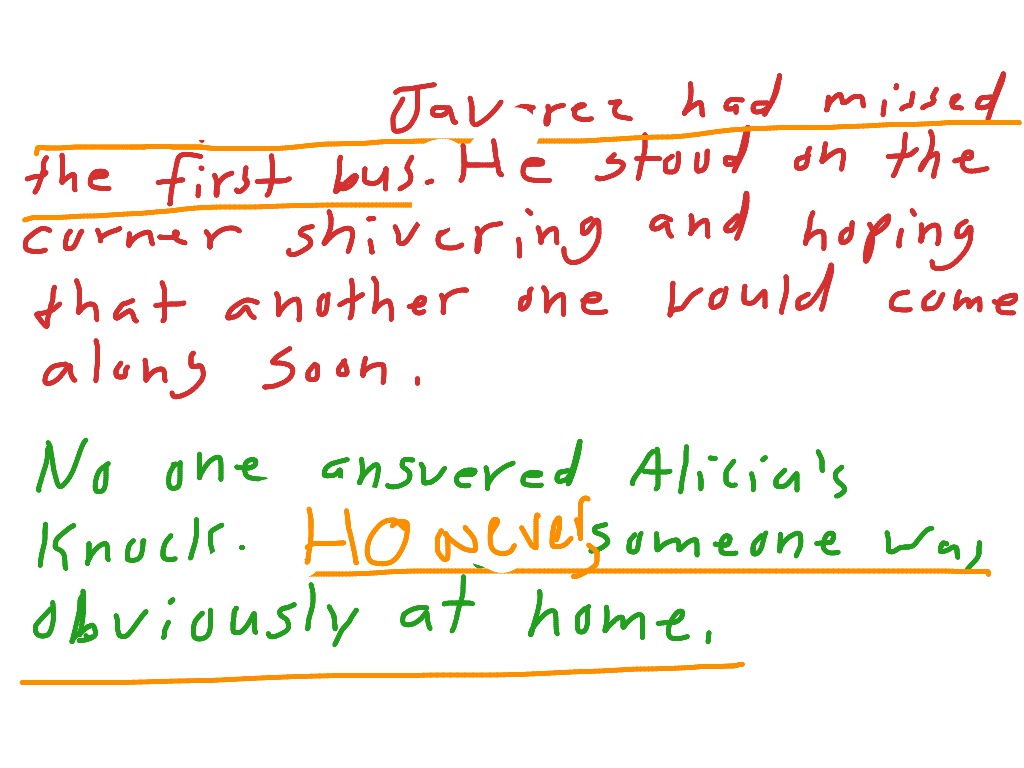 Jav-rez had missed
the first bus. He stood on the
corner shivering and hoping
that another one would come
along soon.
No one answered Alicia's
Knock. HOwever, someone was
obviously at home.